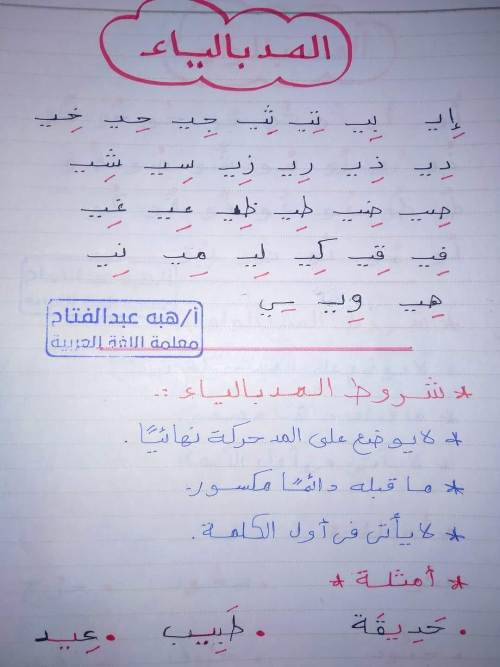 المد بالياء
إِيـ بِيـ تِيـ ثِيـ جِيـ حِيـ خِيـ
دِيـ ذِيـ رِيـ زِيـ سِيـ شِيـ
صِيـ ضِيـ طِيـ ظِيـ عِيـ غِيـ
فِيـ قِيـ كِيـ لِيـ مِيـ نِيـ
هِيـ وِيـ يِي
أ/هبه عبدالفتاح
معلمة اللغة العربية
* شروط المد بالياء :.
* لا يوضع على المد حركة نهائيًا.
* ما قبله دائمًا مكسور.
* لا يأتى فى أول الكلمة.
* أمثلة *
. حَدِيقَة . طَبِيب . عِيد